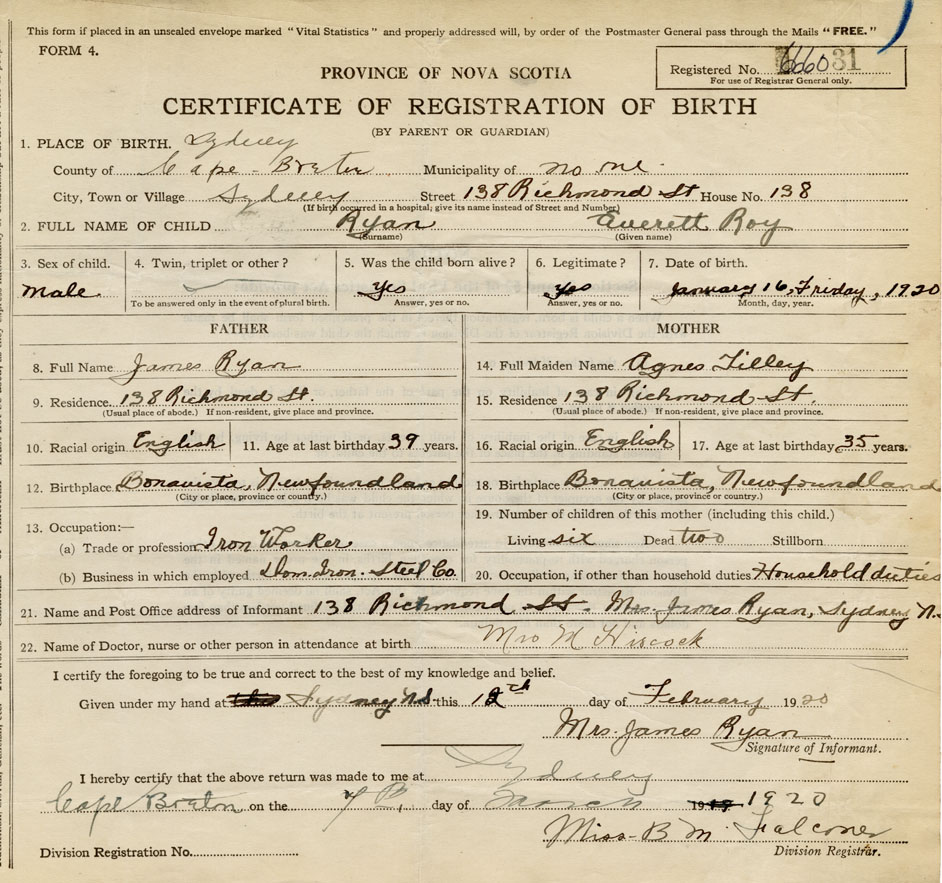 This form if placed in an unsealed envelope marked "Vital Statistics" and properly addressed will, by order of the Postmaster General pass through the Mails "FREE."
FORM 4.
PROVINCE OF NOVA SCOTIA
Registered No. 66031
For use of Registrar General only.
CERTIFICATE OF REGISTRATION OF BIRTH
(BY PARENT OR GUARDIAN)
1. PLACE OF BIRTH. Sydney
County of Cape-Breton Municipality of
City, Town or Village Sydney Street 138 Richmond St House No. 138
(If birth occurred in a hospital, give its name instead of Street and Number)
2. FULL NAME OF CHILD Ryan Everett Roy
(Surname) (Given name)
3. Sex of child. 4. Twin, triplet or other? 5. Was the child born alive? 6. Legitimate? 7. Date of birth.
Male. Yes Yes January 16, Friday, 1920
To be answered only in the event of plural birth. Answer, yes or no. Answer, yes or no. Month, day, year.
FATHER
8. Full Name James Ryan
9. Residence 138 Richmond St.
(Usual place of abode.) If non-resident, give place and province.
10. Racial origin English 11. Age at last birthday 39 years.
12. Birthplace Bonavista, Newfoundland
(City or place, province or country.)
13. Occupation:—
(a) Trade or profession Iron Worker
(b) Business in which employed Dom. Iron. Steel Co.
MOTHER
14. Full Maiden Name Agnes Tilley
15. Residence 138 Richmond St.
(Usual place of abode.) If non-resident, give place and province.
16. Racial origin English 17. Age at last birthday 35 years.
18. Birthplace Bonavista, Newfoundland
(City or place, province or country.)
19. Number of children of this mother (including this child.)
Living six Dead two Stillborn
20. Occupation, if other than household duties Household duties
21. Name and Post Office address of Informant 138 Richmond St. Mrs. James Ryan, Sydney N.
22. Name of Doctor, nurse or other person in attendance at birth Mrs M Hiscock
I certify the foregoing to be true and correct to the best of my knowledge and belief.
Given under my hand at Sydney NS this 12th day of February 1920
Mrs. James Ryan
Signature of Informant.
I hereby certify that the above return was made to me at Sydney
Cape Breton on the day of March 1920
Miss B M Falconer
Division Registration No. Division Registrar.